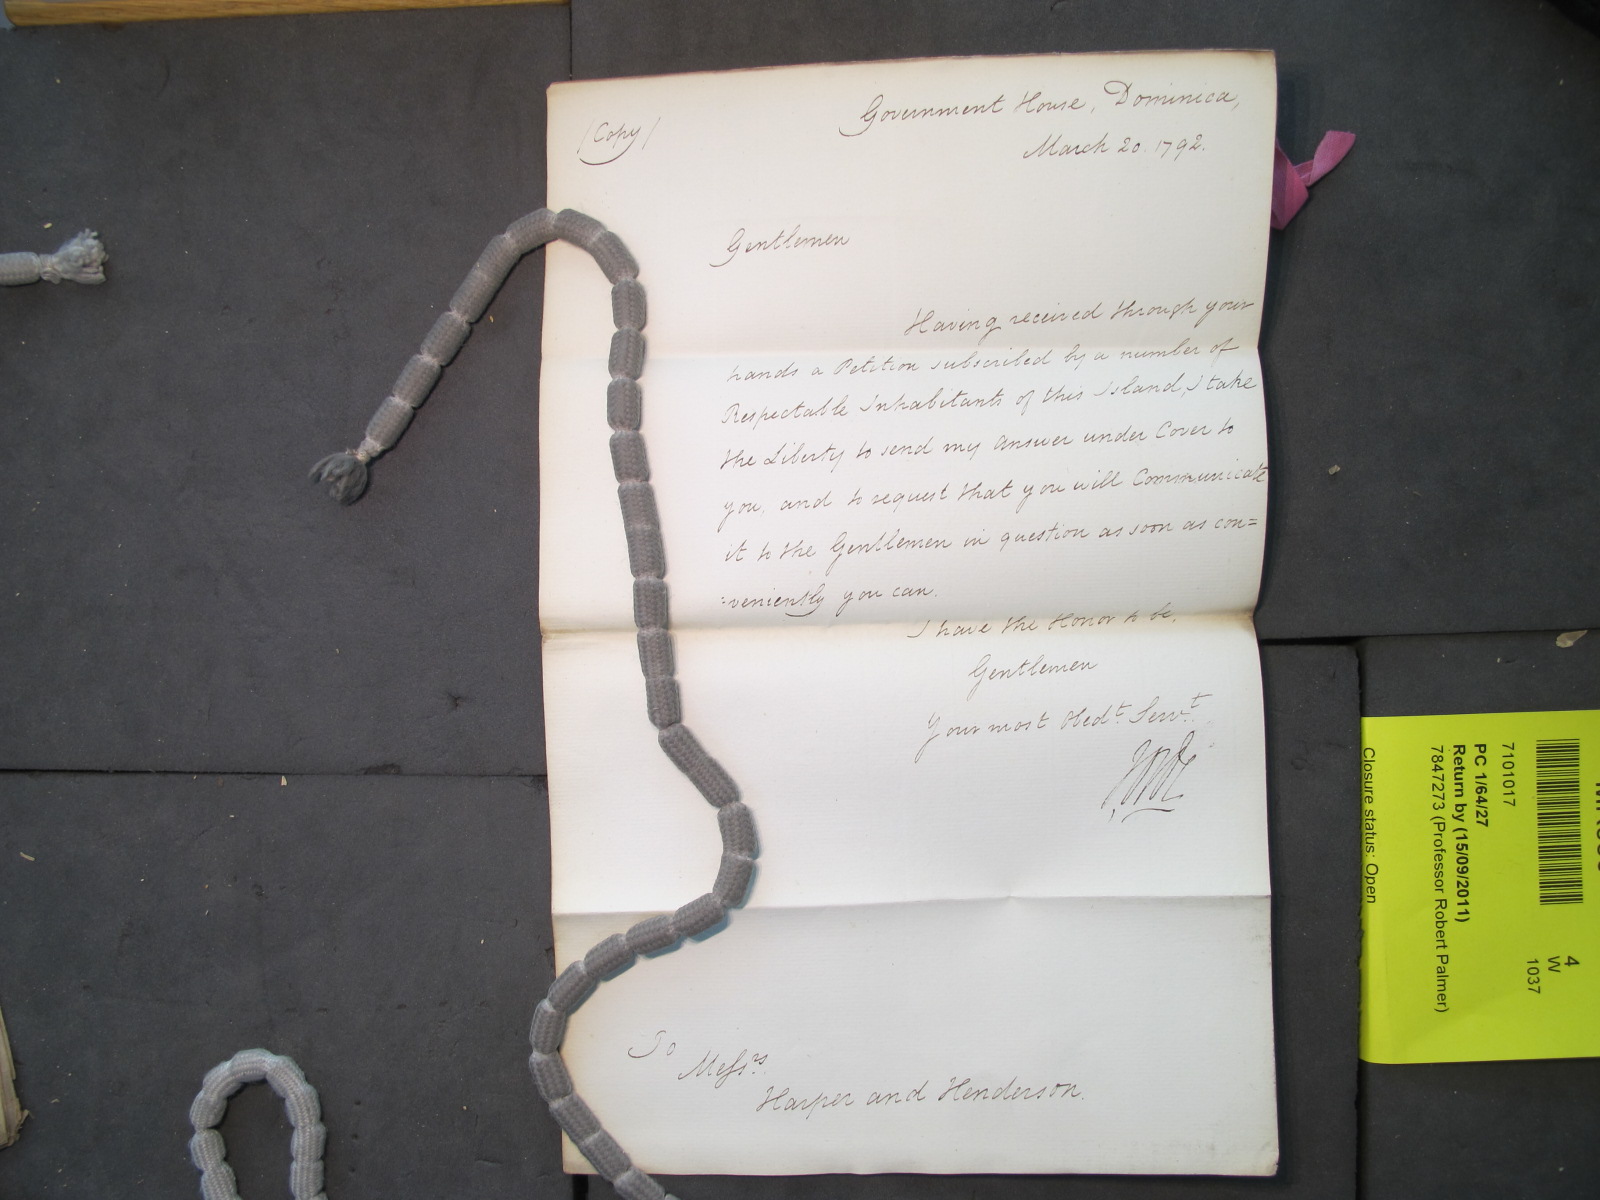 (Copy)
Government House, Dominica,
March 20. 1792.
Gentlemen
Having received through your
hands a Petition subscribed by a number of
Respectable Inhabitants of this Island, I take
the Liberty to send my answer under Cover to
you, and to request that you will Communicate
it to the Gentlemen in question as soon as con=
=veniently you can.
I have the Honor to be,
Gentlemen
Your most Obedt. Servt.
To
Messrs.
Harper and Henderson.
4
W
1037
7101017
PC 1/64/27
Return by (15/09/2011)
7847273 (Professor Robert Palmer)
Closure status: Open